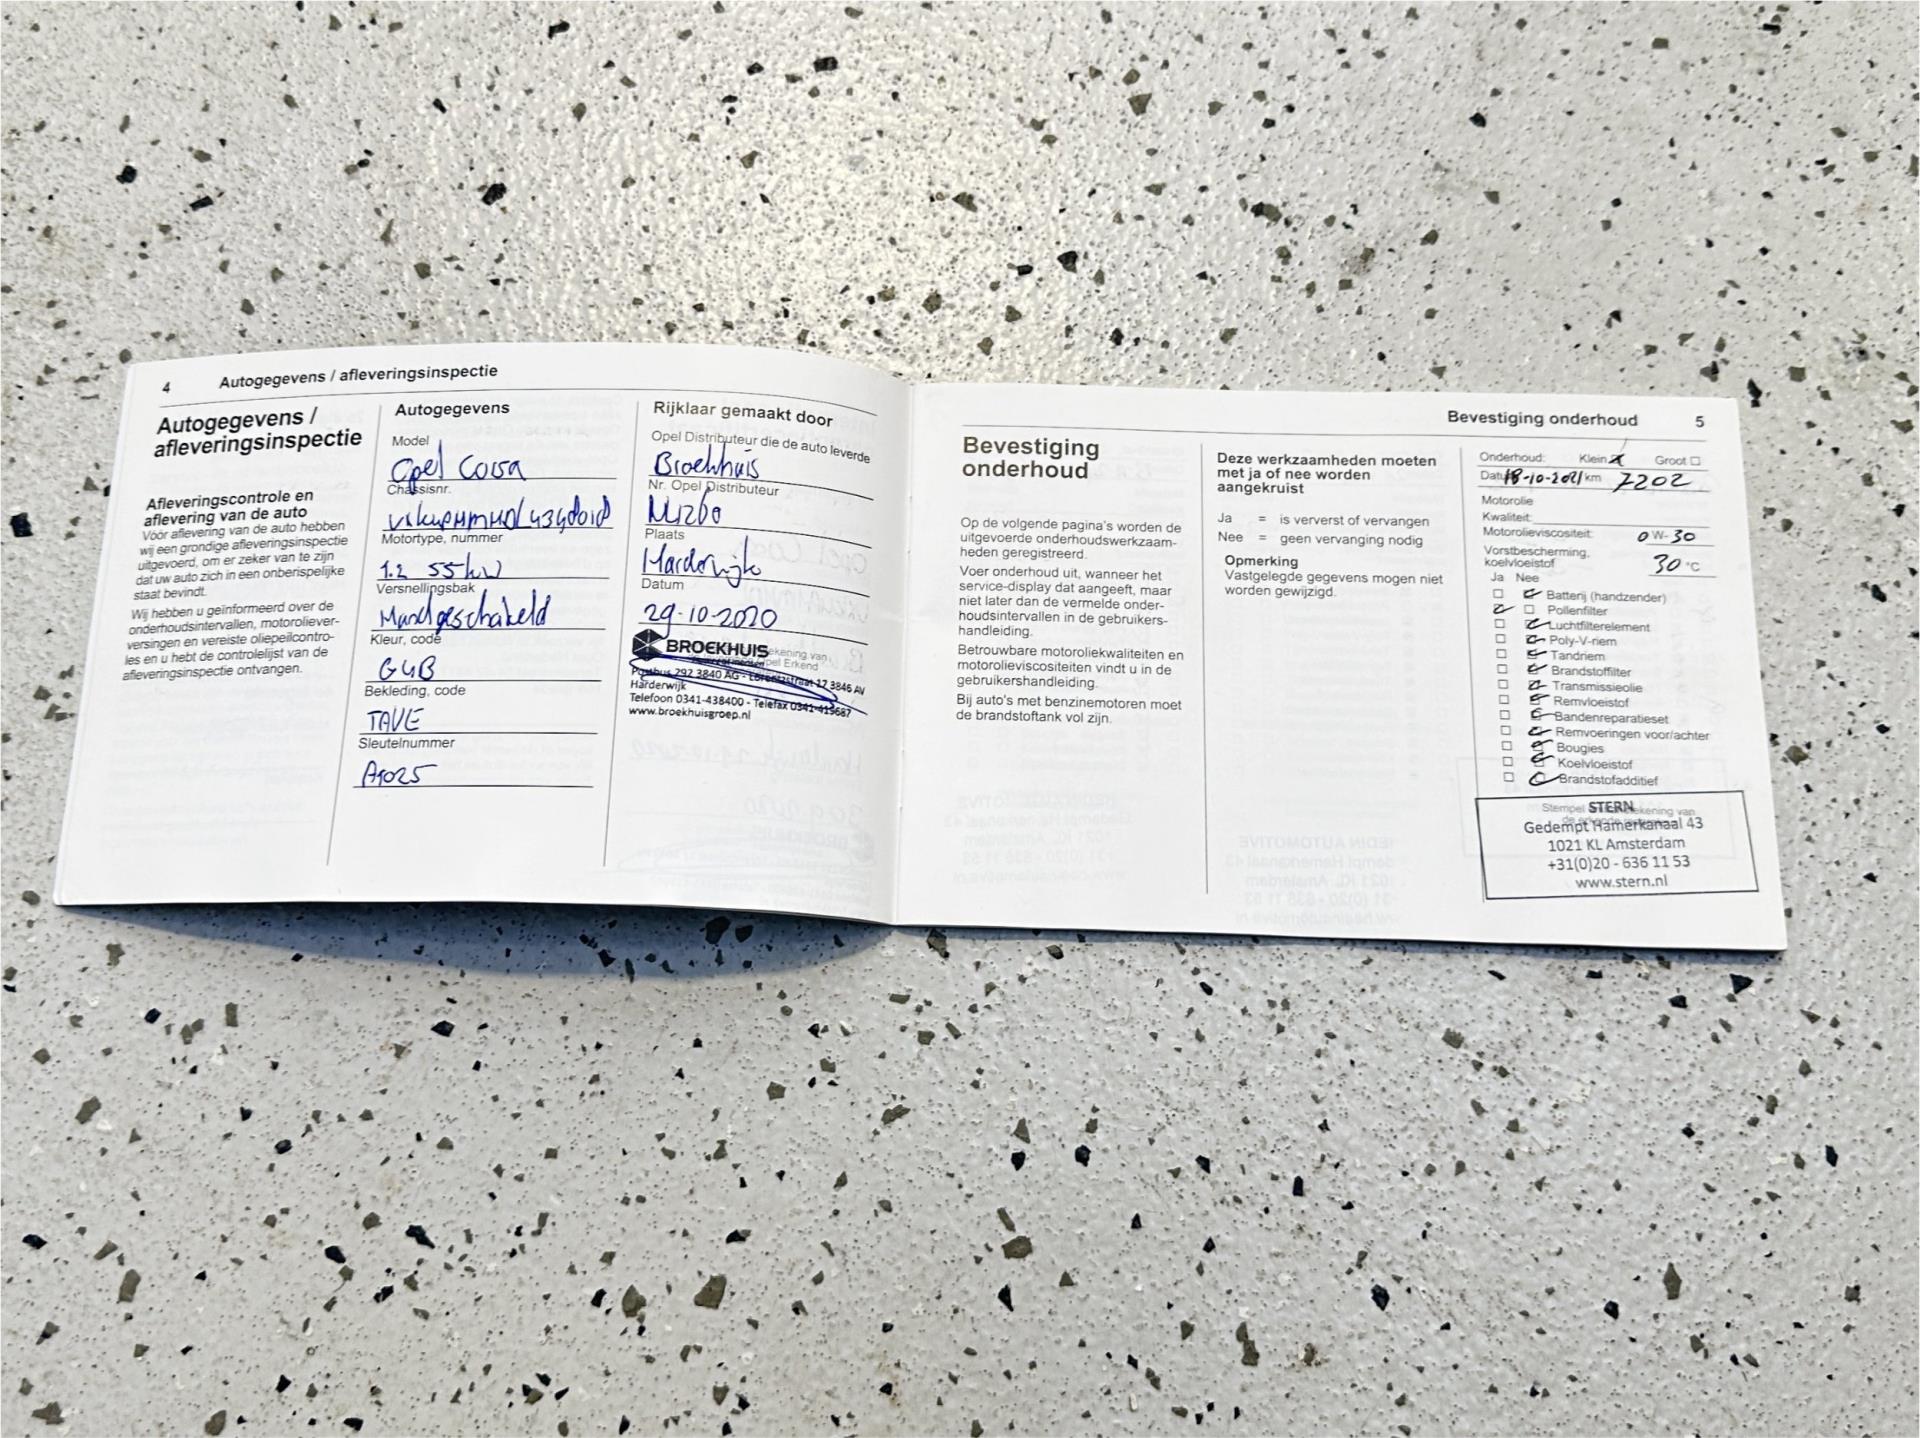 4
Autogegevens / afleveringsinspectie
Autogegevens /
afleveringsinspectie
Afleveringscontrole en
aflevering van de auto
Vóór aflevering van de auto hebben
wij een grondige afleveringsinspectie
uitgevoerd, om er zeker van te zijn
dat uw auto zich in een onberispelijke
staat bevindt.
Wij hebben u geïnformeerd over de
onderhoudsintervallen, motoroliever-
versingen en vereiste oliepeilcontro-
les en u hebt de controlelijst van de
afleveringsinspectie ontvangen.
Autogegevens
Model
Opel Corsa
Chassisnr.
Motortype, nummer
1.2 55kW
Versnellingsbak
Handgeschakeld
Kleur, code
G4B
Bekleding, code
TAVE
Sleutelnummer
A1025
Rijklaar gemaakt door
Opel Distributeur die de auto leverde
Broekhuis
Nr. Opel Distributeur
Plaats
Harderwijk
Datum
29-10-2020
BROEKHUIS
ekening van
Opel Erkend
Postbus 292 3840 AG - Lorentzstraat 17 3846 AV
Harderwijk
Telefoon 0341-438400 - Telefax 0341-419687
www.broekhuisgroep.nl
Bevestiging onderhoud
5
Bevestiging
onderhoud
Op de volgende pagina's worden de
uitgevoerde onderhoudswerkzaam-
heden geregistreerd.
Voer onderhoud uit, wanneer het
service-display dat aangeeft, maar
niet later dan de vermelde onder-
houdsintervallen in de gebruikers-
handleiding.
Betrouwbare motoroliekwaliteiten en
motorolieviscositeiten vindt u in de
gebruikershandleiding.
Bij auto's met benzinemotoren moet
de brandstoftank vol zijn.
Deze werkzaamheden moeten
met ja of nee worden
aangekruist
Ja = is ververst of vervangen
Nee = geen vervanging nodig
Opmerking
Vastgelegde gegevens mogen niet
worden gewijzigd.
Onderhoud: Klein Groot
Datum 18-10-2021 km 7202
Motorolie
Kwaliteit:
Motorolieviscositeit: 0 W-30
Vorstbescherming,
koelvloeistof 30 °C
Ja Nee
Batterij (handzender)
Pollenfilter
Luchtfilterelement
Poly-V-riem
Tandriem
Brandstoffilter
Transmissieolie
Remvloeistof
Bandenreparatieset
Remvoeringen voor/achter
Bougies
Koelvloeistof
Brandstofadditief
Stempel STERN ekening van
Gedempt Hamerkanaal 43
1021 KL Amsterdam
+31(0)20 - 636 11 53
www.stern.nl